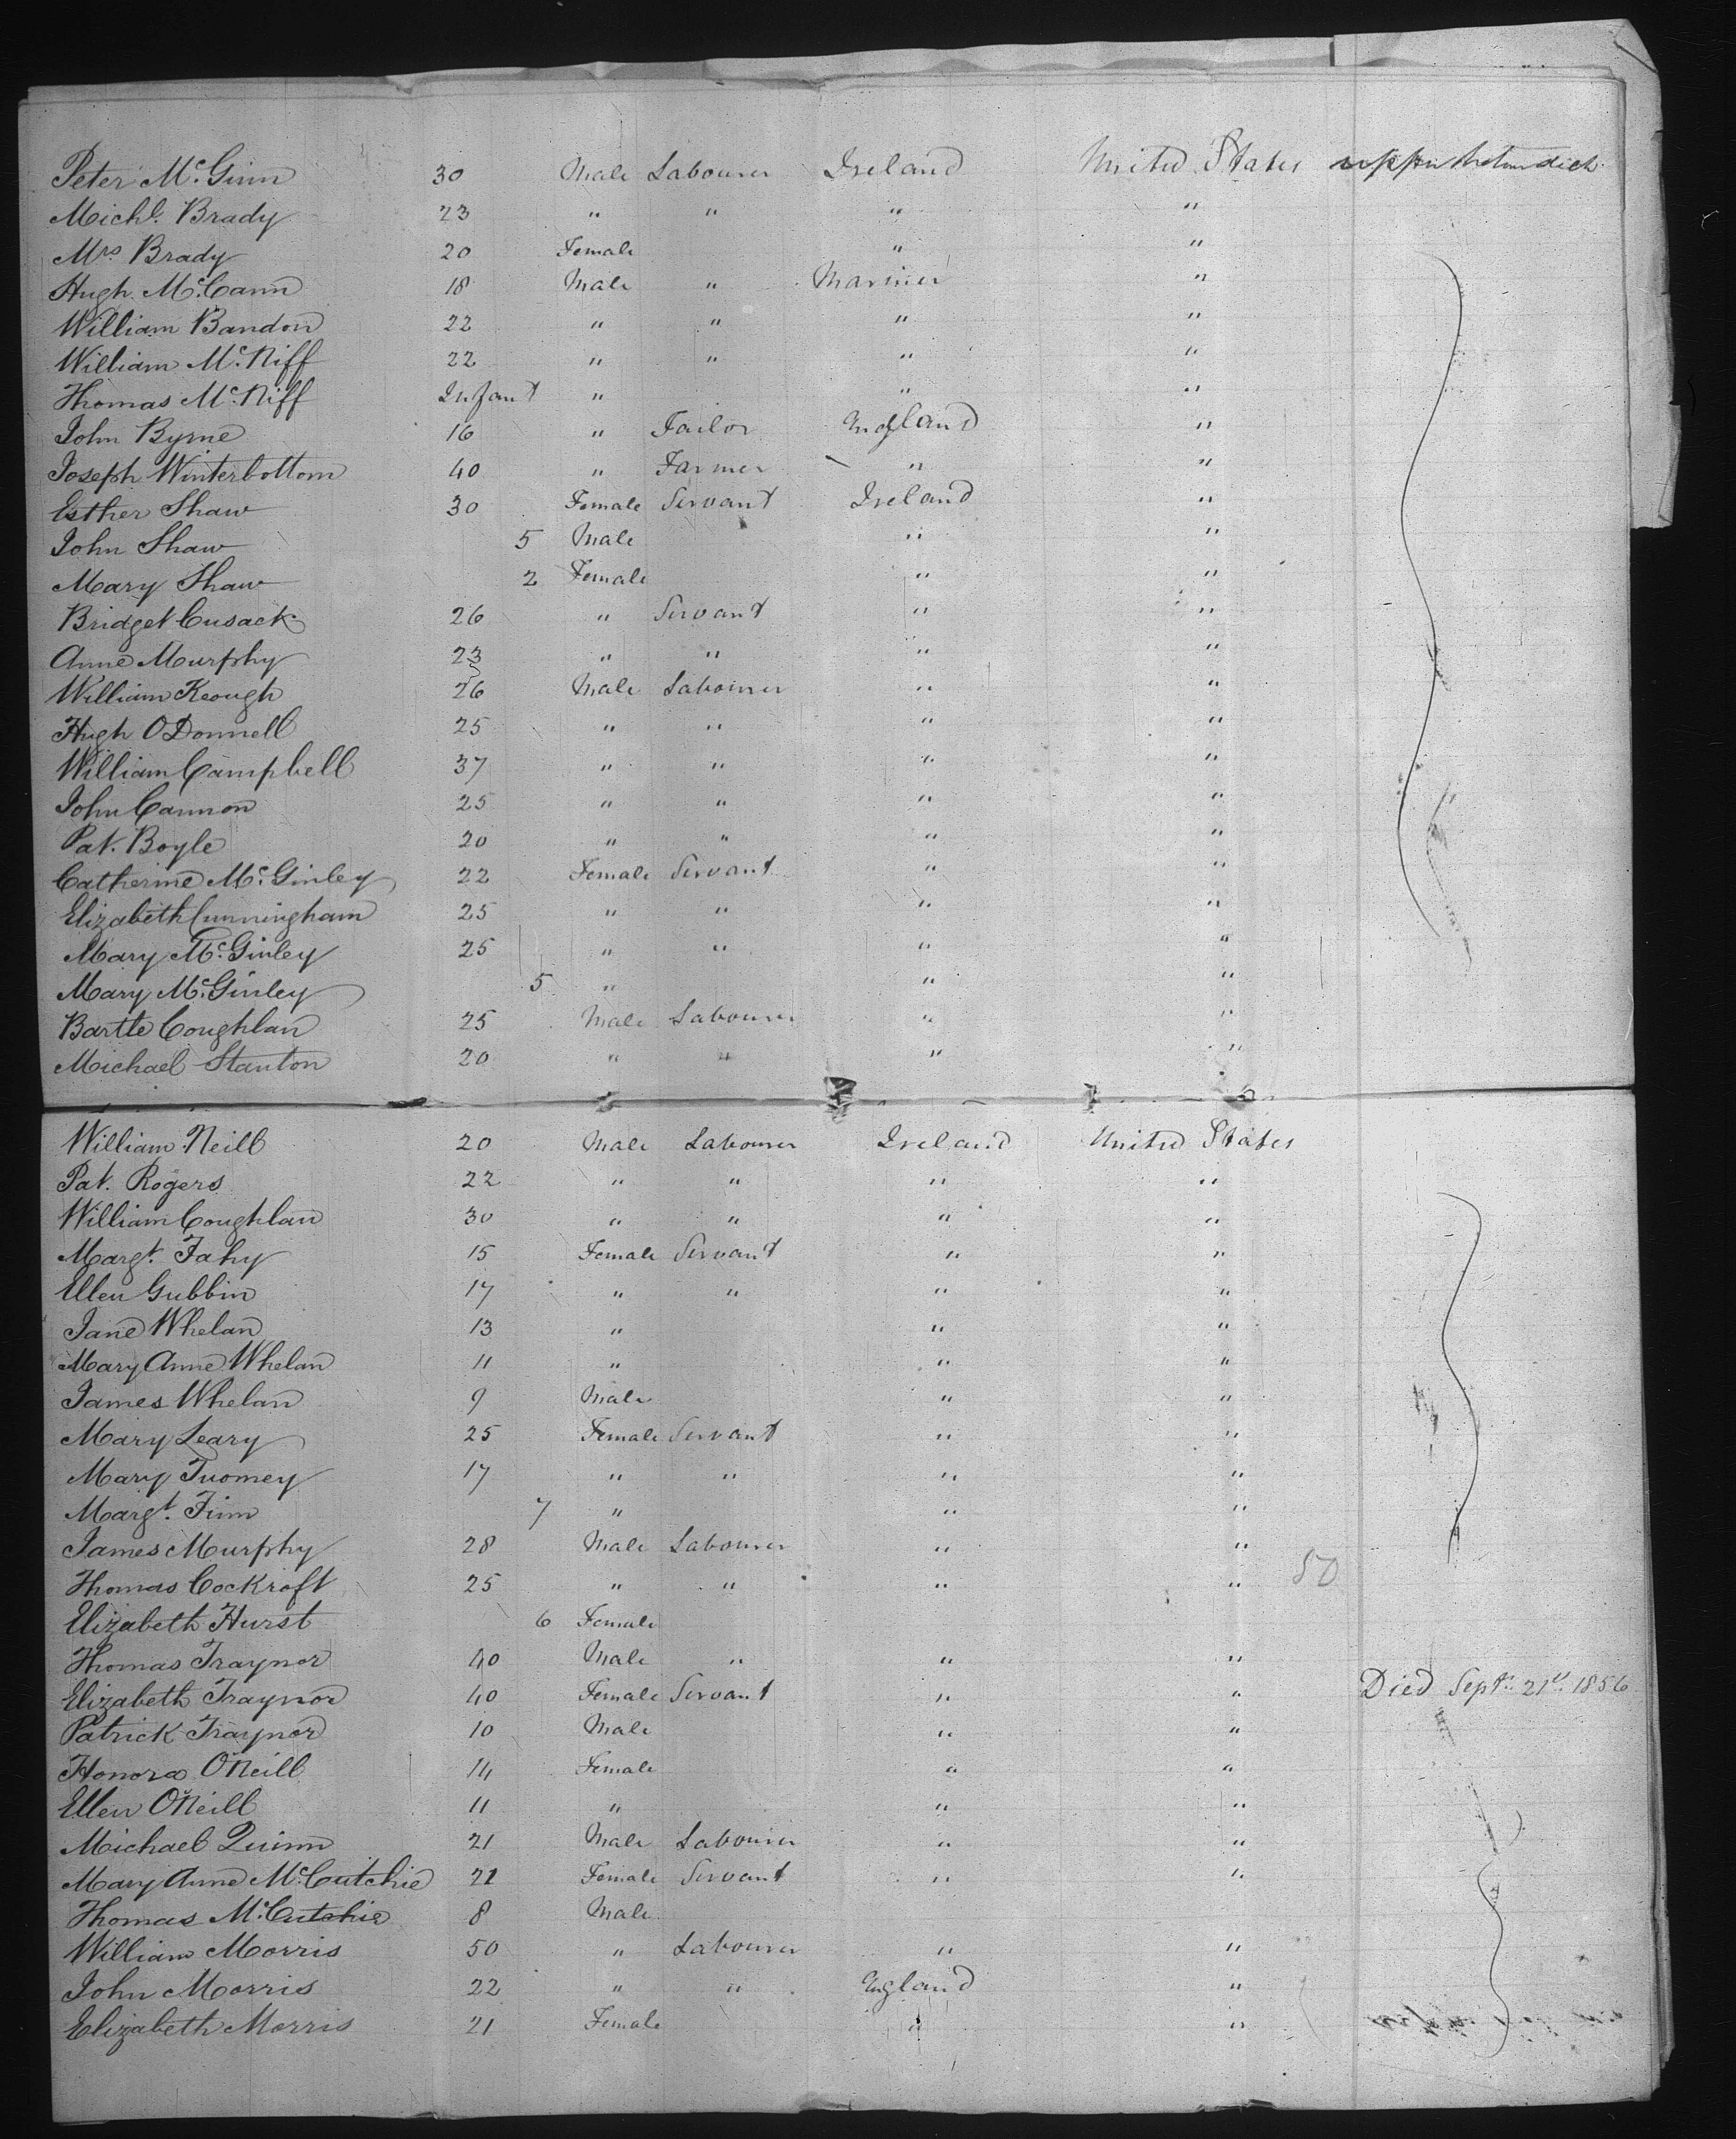 Peter McGinn 30 Male Labourer Ireland United States upper between deck
Michl. Brady 23 " " " "
Mrs Brady 20 Female " "
Hugh McCann 18 Male " Marinier "
William Bandon 22 " " " "
William McNiff 22 " " " "
Thomas McNiff Infant " " "
John Byrne 16 " Tailor England "
Joseph Winterbottom 40 " Farmer " "
Esther Shaw 30 Female Servant Ireland "
John Shaw 5 Male " "
Mary Shaw 2 Female " "
Bridget Cusack 26 " Servant " "
Anne Murphy 23 " " " "
William Keough 26 Male Labourer " "
Hugh O Donnell 25 " " " "
William Campbell 37 " " " "
John Cannon 25 " " " "
Pat. Boyle 20 " " " "
Catherine McGinley 22 Female Servant " "
Elizabeth Cunningham 25 " " " "
Mary McGinley 25 " " " "
Mary McGinley 5 " " "
Bartle Coughlan 25 Male Labourer " "
Michael Stanton 20 " " " "
William Neill 20 Male Labourer Ireland United States
Pat. Rogers 22 " " " "
William Coughlan 30 " " " "
Margt. Fahy 15 Female Servant " "
Ellen Gubbin 17 " " " "
Jane Whelan 13 " " "
Mary Anne Whelan 11 " " "
James Whelan 9 Male " "
Mary Leary 25 Female Servant " "
Mary Tuomey 17 " " " "
Margt. Finn 7 " " "
James Murphy 28 Male Labourer " "
Thomas Cockroft 25 " " " " 50
Elizabeth Hurst 6 Female
Thomas Traynor 40 Male " " "
Elizabeth Traynor 40 Female Servant " " Died Septr. 21st. 1856
Patrick Traynor 10 Male " "
Honora O'Neill 14 Female " "
Ellen O'Neill 11 " " "
Michael Quinn 21 Male Labourer " "
Mary Anne McCutchie 21 Female Servant " "
Thomas McCutchie 8 Male
William Morris 50 " Labourer " "
John Morris 22 " " England "
Elizabeth Morris 21 Female " "